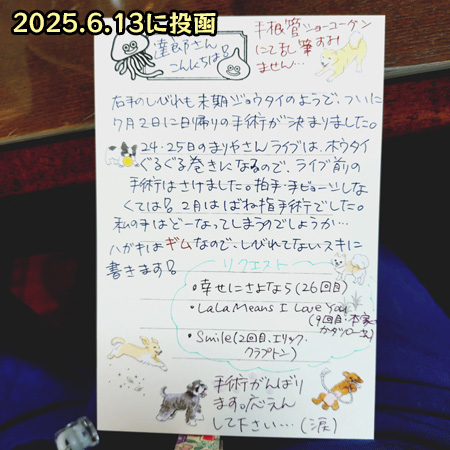 2025.6.13に投函
達郎さん
こんにちは!
手根管ショーコーグン
にて乱筆すみ
ません…
右手のしびれも末期ジョウタイのようで、ついに
7月2日に日帰りの手術が決まりました。
24・25日のまりやさんライブは、ホウタイ
ぐるぐる巻きになるので、ライブ前の
手術はさけました。拍手・手ピョーシしな
くては! 2月はばね指手術でした。
私の手はどーなってしまうのでしょうか…
ハガキはギムなので、しびれてないスキに
書きます!
リクエスト
・幸せにさよなら(26回目)
・LaLa Means I Love You
(9回目・本家
かダツローで)
・Smile(2回目、エリック・
クラプトン)
手術がんばり
ます。応えん
して下さい…(涙)